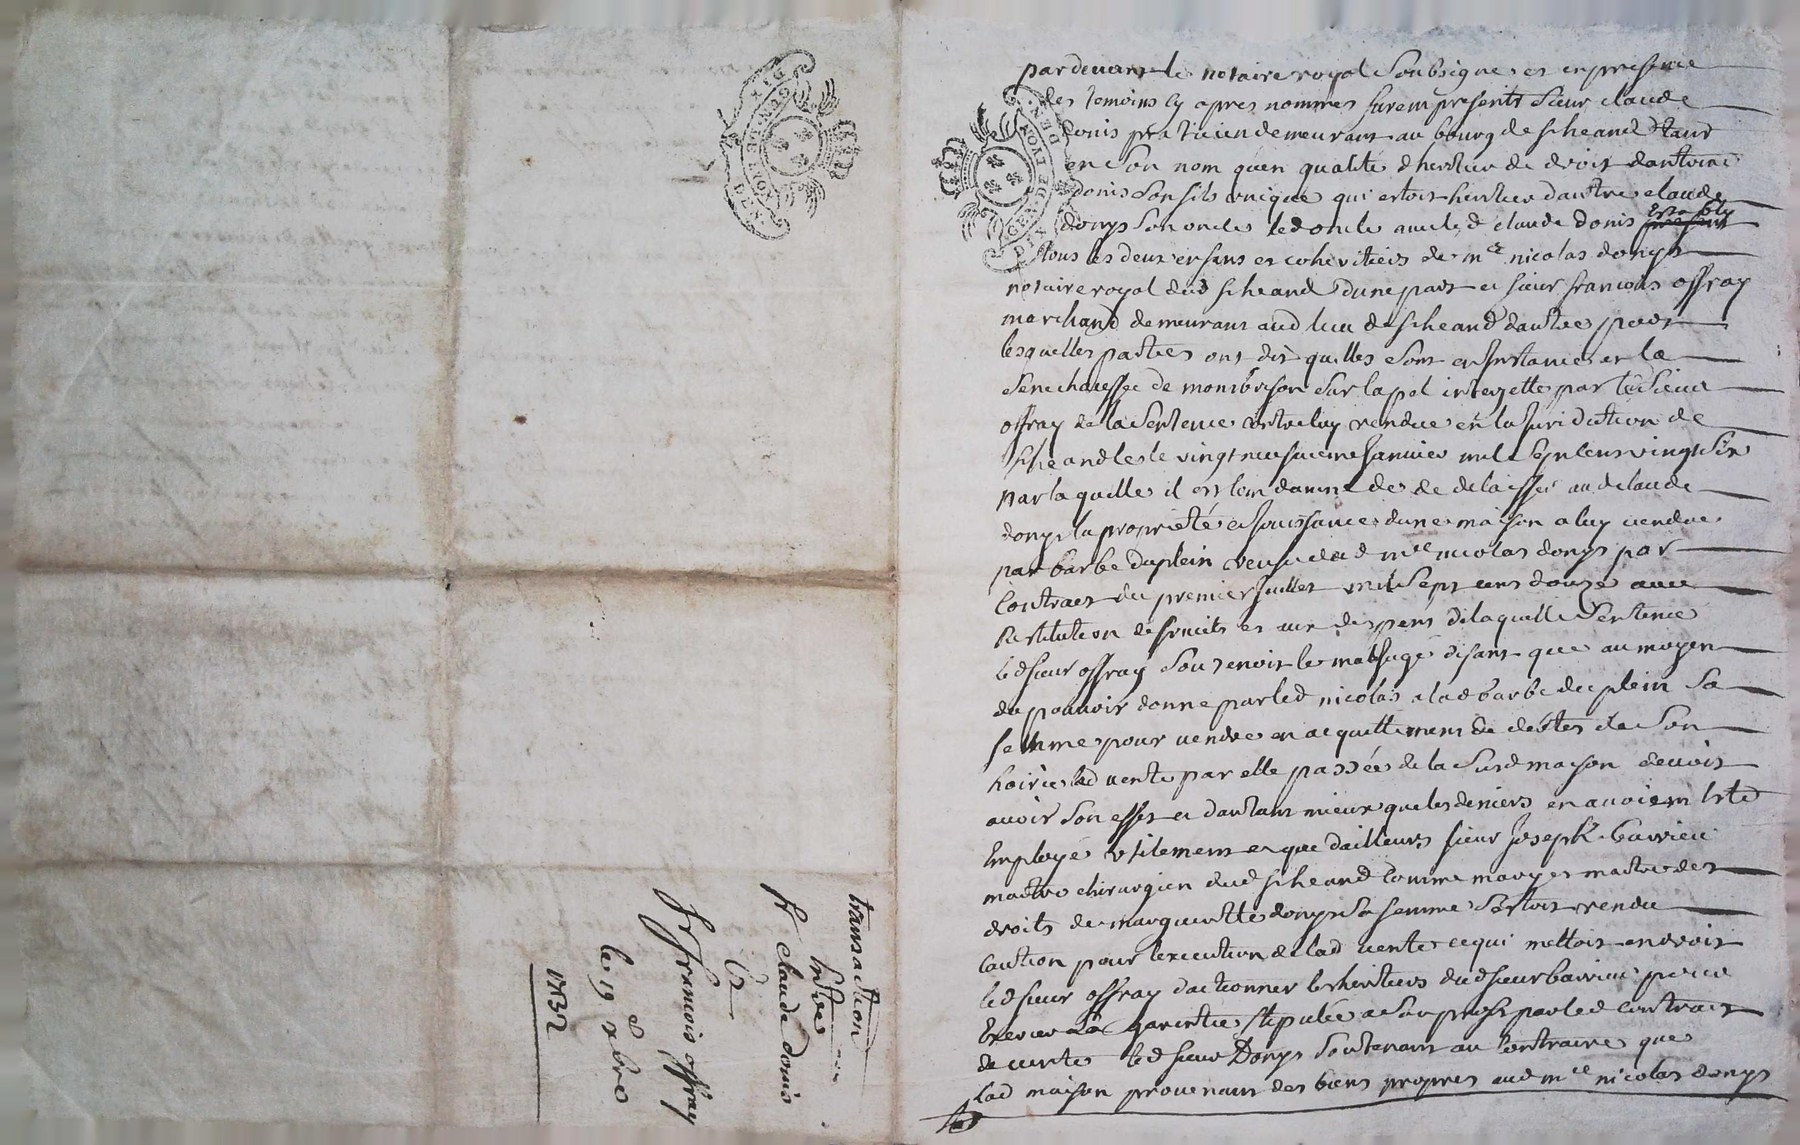 transaction
Entre
Sr claude donis
Et
Sr francois offray
le 19 xbre
1732
GEN DE LYON
pardevant le notaire royal Soubsigne et en presence
des temoins cy apres nommes furent presents Sieur claude
donis praticien demeurant au bourg de st heand tant
en Son nom qu'en qualité d'heritier de droit dantoine
donis Son fils unique qui estoit heritier dautre claude
donys Son oncle led oncle avec led claude donis
tous les deux enfans et coheritiers de me nicolas donys
notaire royal dud st heand dune part et sieur francois offray
marchand demeurant aud lieu de st heand dautre part
lesquelles parties ont dit quelles Sont en Instance en la
Senechaussee de montbrison Sur lapel interjette par led Sieur
offray de la Sentence contre luy rendue en la Juridiction de
st heand le vingt neufvieme Janvier mil Sept cens vingt Six
par laquelle il est condamné de de delaisser aud claude
donys la proprieté et Jouissance dune maison a luy vendue
par barbe duplein veuve dud me nicolas donys par
contract du premier Juillet mil Sept cens douze avec
Restitution de fruits et aux despens de laquelle Sentence
led sieur offray Soutenoit le mal Jugé disant que au moyen
du pouvoir donne par led nicolas a lad barbe du plein Sa
femme pour vendre en acquittement de debtes de Son
hoirie lad vente par elle passée de la Susd maison devoit
avoir Son effet et dautant mieux que les deniers en avoient Esté
Employé utilement et que dailleurs sieur Joseph barrieu
maitre chirurgien dud st heand comme mary et maitre des
droits de margueritte donys Sa femme S'estoit rendu
caution pour l'execution de lad vente ce qui mettoit en droit
led sieur offray dactionner les heritiers dud sieur barrieu pour
Exercer la garentie stipulée a Son profit par led contract
de vente led sieur Donys Soutenant au contraire que
lad maison provenant des biens propres aud me nicolas donys